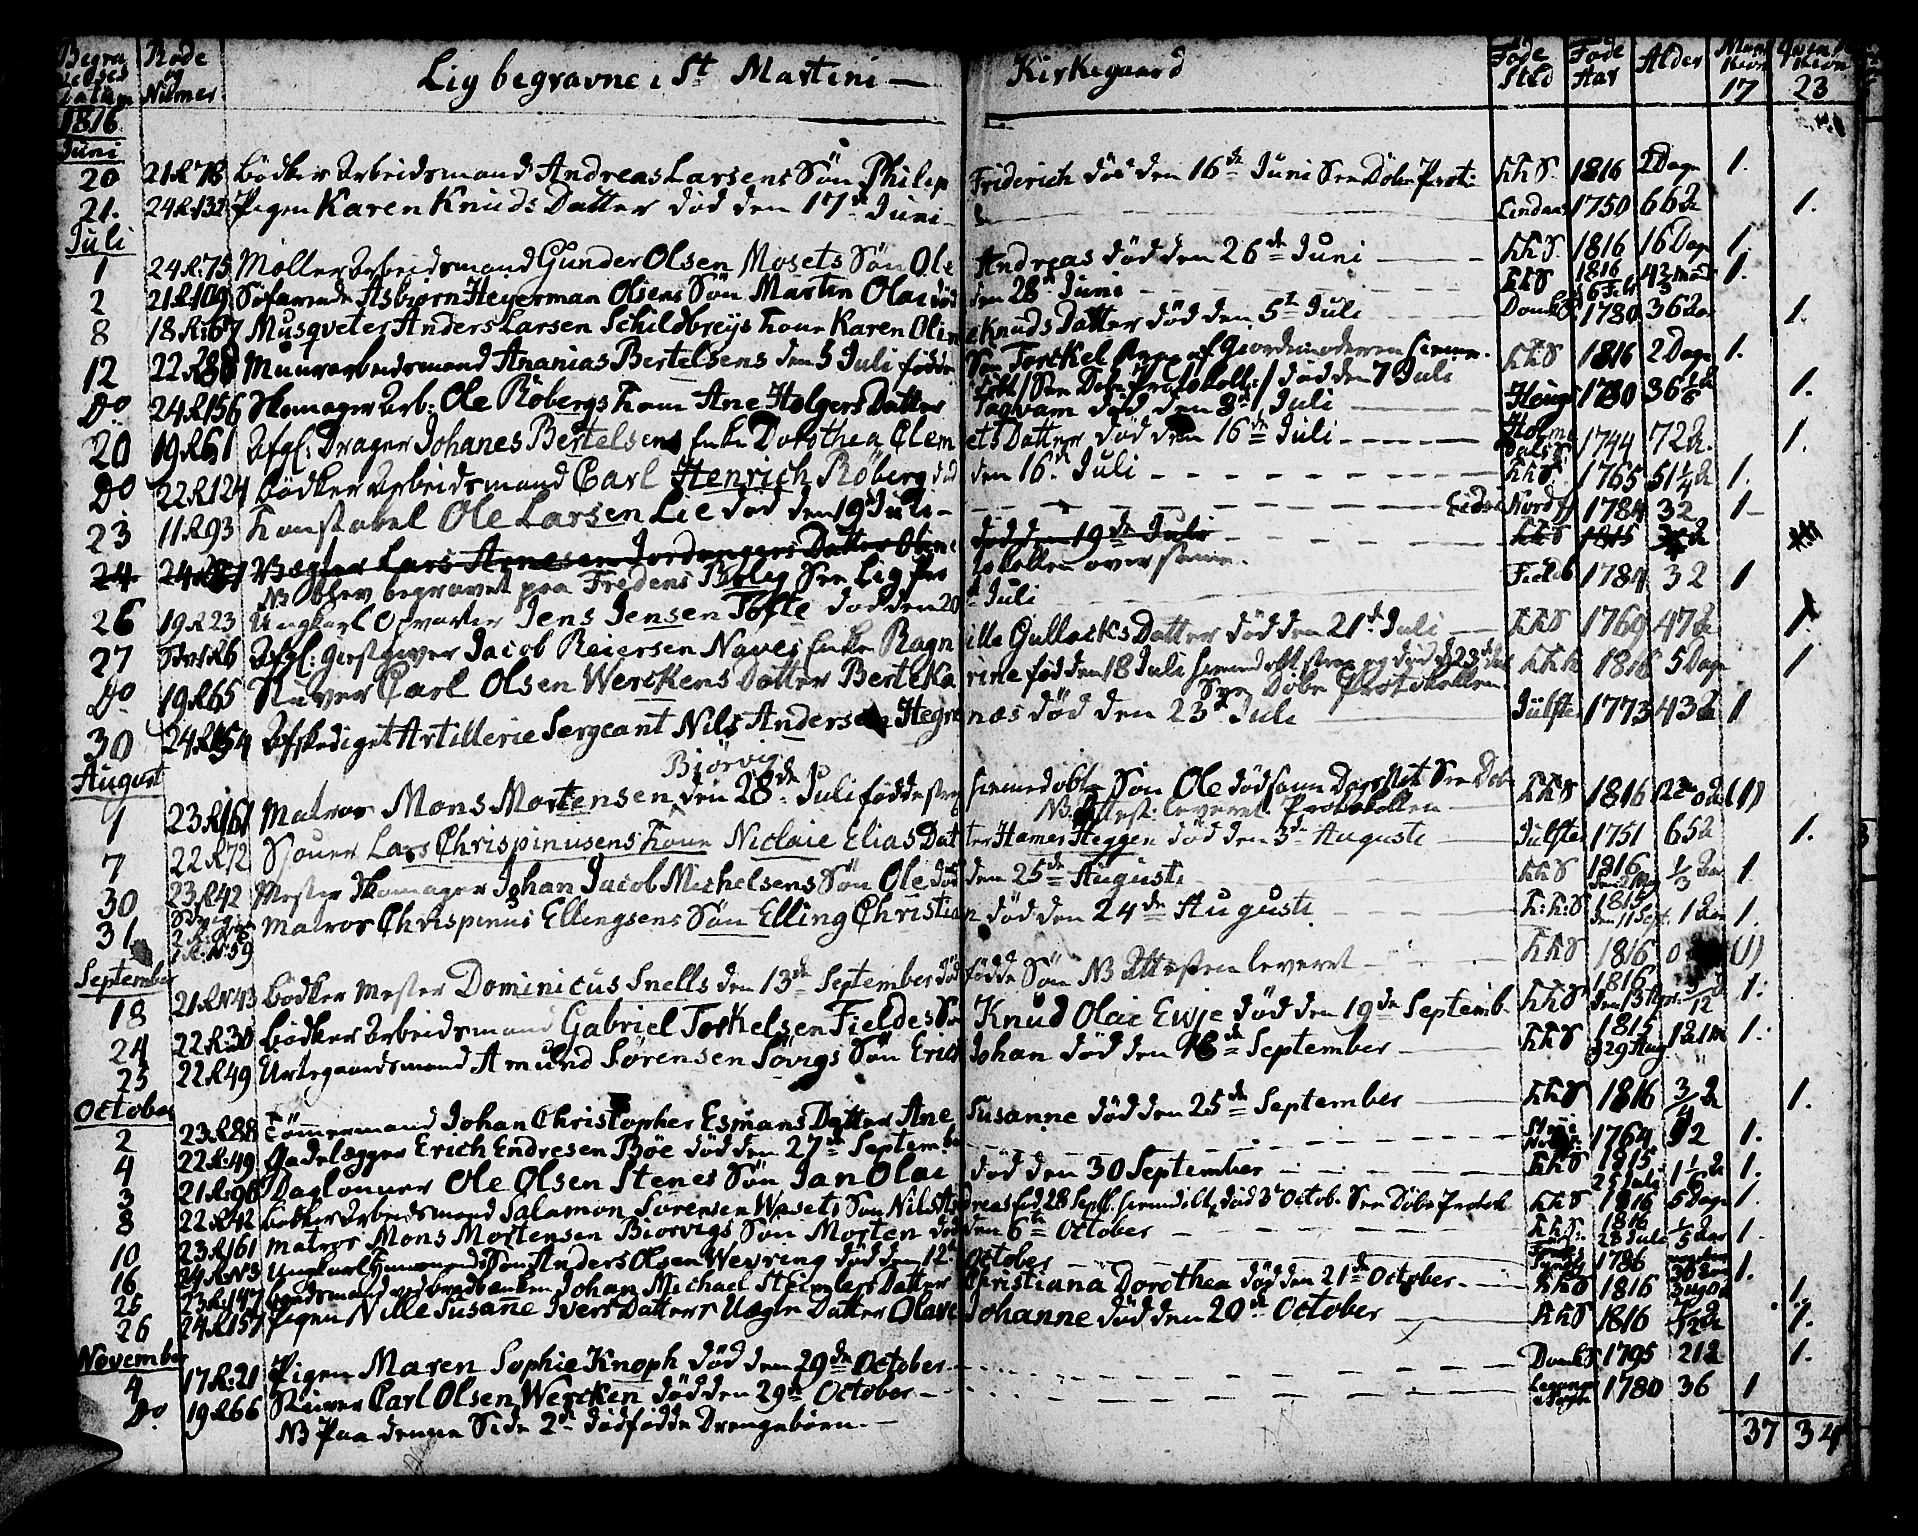 Begra velses Datum | Rode og Numer | Lig begravne i St Martini — Kirkegaard | Føde Sted | Føde Aar | Alder | Mand kiøn 17 | Qvinde kiøn 23
1816
Juni
20 21R78 Bødker Arbeidsmand Andreas Larsens Søn Philip Friderich død den 16de Juni See Døbe Prot: KKS. 1816 2 Dage 1.
21. 24R132 Pigen Karen Knuds Datter død den 17de Juni Lindaas 1750 66 1.
Juli
1 24R:75 Møller Arbeidsmand Gunder Olsen Mosets Søn Ole Andreas død den 26de Juni KKS. 1816 16 Dage 1.
2 21R109 Søfarende Asbiørn Heyerman Olsens Søn Martin Olai død den 28de Juni KKS 1816 1.
8 18R:67 Musqveter Anders Larsen Schildbreys Kone Karen Oline Knuds Datter død den 5te Juli 1780 36 1.
12 22R88 Muurarbeidsmand Ananias Bertelsens den 5 Juli fødde Søn Torckel af Giordemoderen hiemme
døbt /: See Døbe Protokoll :/ død den 7 Juli KKS 1816 2 Dage 1.
Do 24R156 Skomager Arb: Ole Røbergs Kone Ane Holgers Datter død den 8de Juli 1780 36 1.
20 19R61 Afgl: Drager Johanes Bertelsens Enke Dorothea Clemets Datter død den 16de Juli 1744 72 1.
Do 22R124 Bødker Arbeidsmand Carl Henrich Røberg død den 16de Juli KKS. 1765 51 1/4 1.
23 11R93 Konstabel Ole Larsen Lie død den 19 Juli Eidet Nordfi 1784 32 1
24 Vægter Lars Arnesen Jordangers Datter Oline død den 19de Juli KKS 1815
NB blev begravet paa Fredens Bolig See Lig Protokollen over samme.
26 19R23 Ungkarl Opvarter Jens Jensen Tofte død den 20de Juli 1784 32 1
27 Afgl: Giestgiver Jacob Reiersen Naves Enke Ragnille Gullacks Datter død den 21de Juli KKS 1769 47 1.
Do 19R65 Stuver Carl Olsen Werckens Datter Berte Karine fød den 18 Juli hiemdøbt strax og død d 23de Juli KKK 1816 5 Dage 1
See Døbe Protokollen.
30 24R154 Afskediget Artillerie Sergeant Nils Andersen Hegrenæs død den 23de Juli Jülster 1773 43 1
August
Biørvig
1 23R161 Matros Mons Mortensen den 28de Juli fødde hiemedøbte Søn Ole død samme See Døbe KKS 1816 (1)
NB Attest: leveret. Protokollen
7 22R72 Sjouer Lars Chrispinusens Kone Niclaie Elias Datter Hamer Heggen død den 3de Augusti Jülster 1751 65 1.
30 23R42 Mester Skomager Johan Jacob Michelsens Søn Ole død den 25de Augusti KKS 1816 1/3 Aar 1
31 Matros Chrispinus Ellingsens Søn Elling Christian død den 24de Augusti K:K:S 1815 den 11 Sept. 1 Aar 1.
2R:
1R:N:59
September
18 21R N43 Bødker Mester Dominicus Snells den 13de September dødfødde Søn NB Attesten leveret KKS 1816 0 (1)
24 22R:30 Bødker Arbeidsmand Gabriel Torkelsen Fieldes Søn Knud Olai Ewje død den 19de Septemb. KKS 1816 5/12 1.
25 22R49 Urtegaardsmand Amund Sørensen Søvigs Søn Erich Johan død den 18de September KKS 1815 d 29 Aug 1 A 1 m 1.
October
2 23R88 Tømmermand Johan Christopher Esmans Datter Ane Susanne død den 25de September KKS 1816 3/4 1.
4 22R:49 Gadelægger Erich Endresen Bøe død den 27de September 1764 52 1.
3 21R:96 Dagløner Ole Olsen Stenes Søn Jan Olai død den 30 September KKS 1815 25 Juli 1 1/6 1.
8 22R42 Bødker Arbeidsmand Salamon Sørensen Wasets Søn Nils Andreas fød 28 Sept. hiemdøbt, død 3de Octob. See Døbe Protok KKS 1816 5 Dage 1.
10 23R161 Matros Mons Mortensen Biørvigs Søn Morten død den 6te October KKS. 1816 28 Juli 1/5 Aar 1
16 24R N3 Ungkarl Anders Olsen Wevring død den 12te October 1786 1.
25 23R:147 Johan Michael Steimlers Datter Christiana Dorothea død den 21de October KKS 1816 1.
26 24R157 Pigen Nille Susane Ivers Datters Uægte Datter Olave Johanne død den 20de October KKS 1816 1.
November
4 17R:21 Pigen Maren Sophie Knoph død den 29de October 1795 21 1.
Do 19R66 Stuver Carl Olsen Wercken død den 29de October 1780 36 1
NB Paa denne Side 2de dødfødde Drengebørn. 37 34